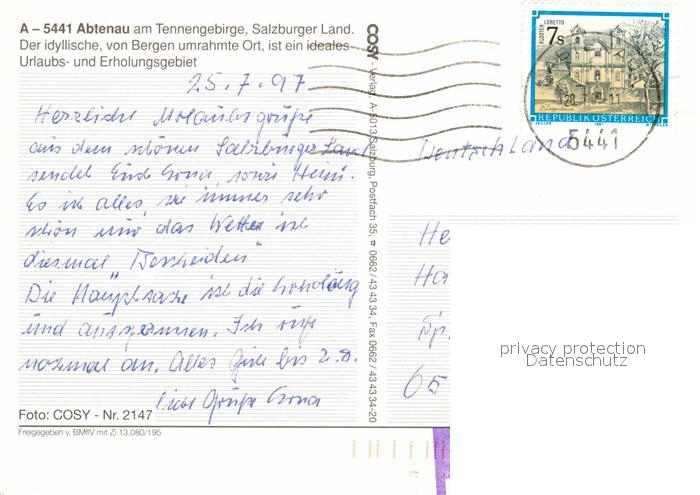 A – 5441 Abtenau am Tennengebirge, Salzburger Land.
Der idyllische, von Bergen umrahmte Ort, ist ein ideales
Urlaubs- und Erholungsgebiet
25.7.97
Herzliche Urlaubsgrüße
aus dem schönen Salzburger Land
sendet Euch Erna, sowie Heini.
Es ist alles, wie immer sehr
schön und das Wetter ist
diesmal "Bescheiden"
Die Hauptsache ist die Erholung
und ausspannen. Ich rufe
nochmal an. Alles Gute bis
liebe Grüße Erna
Foto: COSY - Nr. 2147
Freigegeben v. BMflV mit Zl.13.080/195
COSY - Verlag, A-5013 Salzburg, Postfach 35, ☎ 0662/43 43 34, Fax 0662/43 43 34-20
KLOSTER LORETTO
7s
REPUBLIK ÖSTERREICH
5441
Deutschland
He
Ha
65
privacy protection
Datenschutz